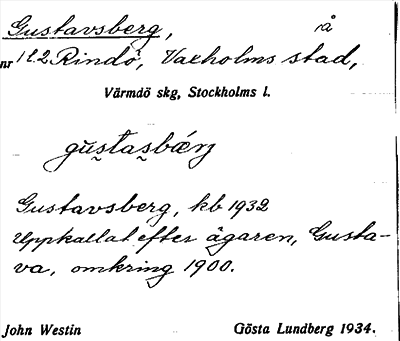 Gustavsberg, å
nr 1 l. 2 Rindö, Vaxholms stad,
Värmdö skg, Stockholms l.
gu̬stasbǽrŋ
Gustavsberg, kb 1932
Uppkallat efter ägaren, Gusta-
va, omkring 1900.
John Westin Gösta Lundberg 1934.